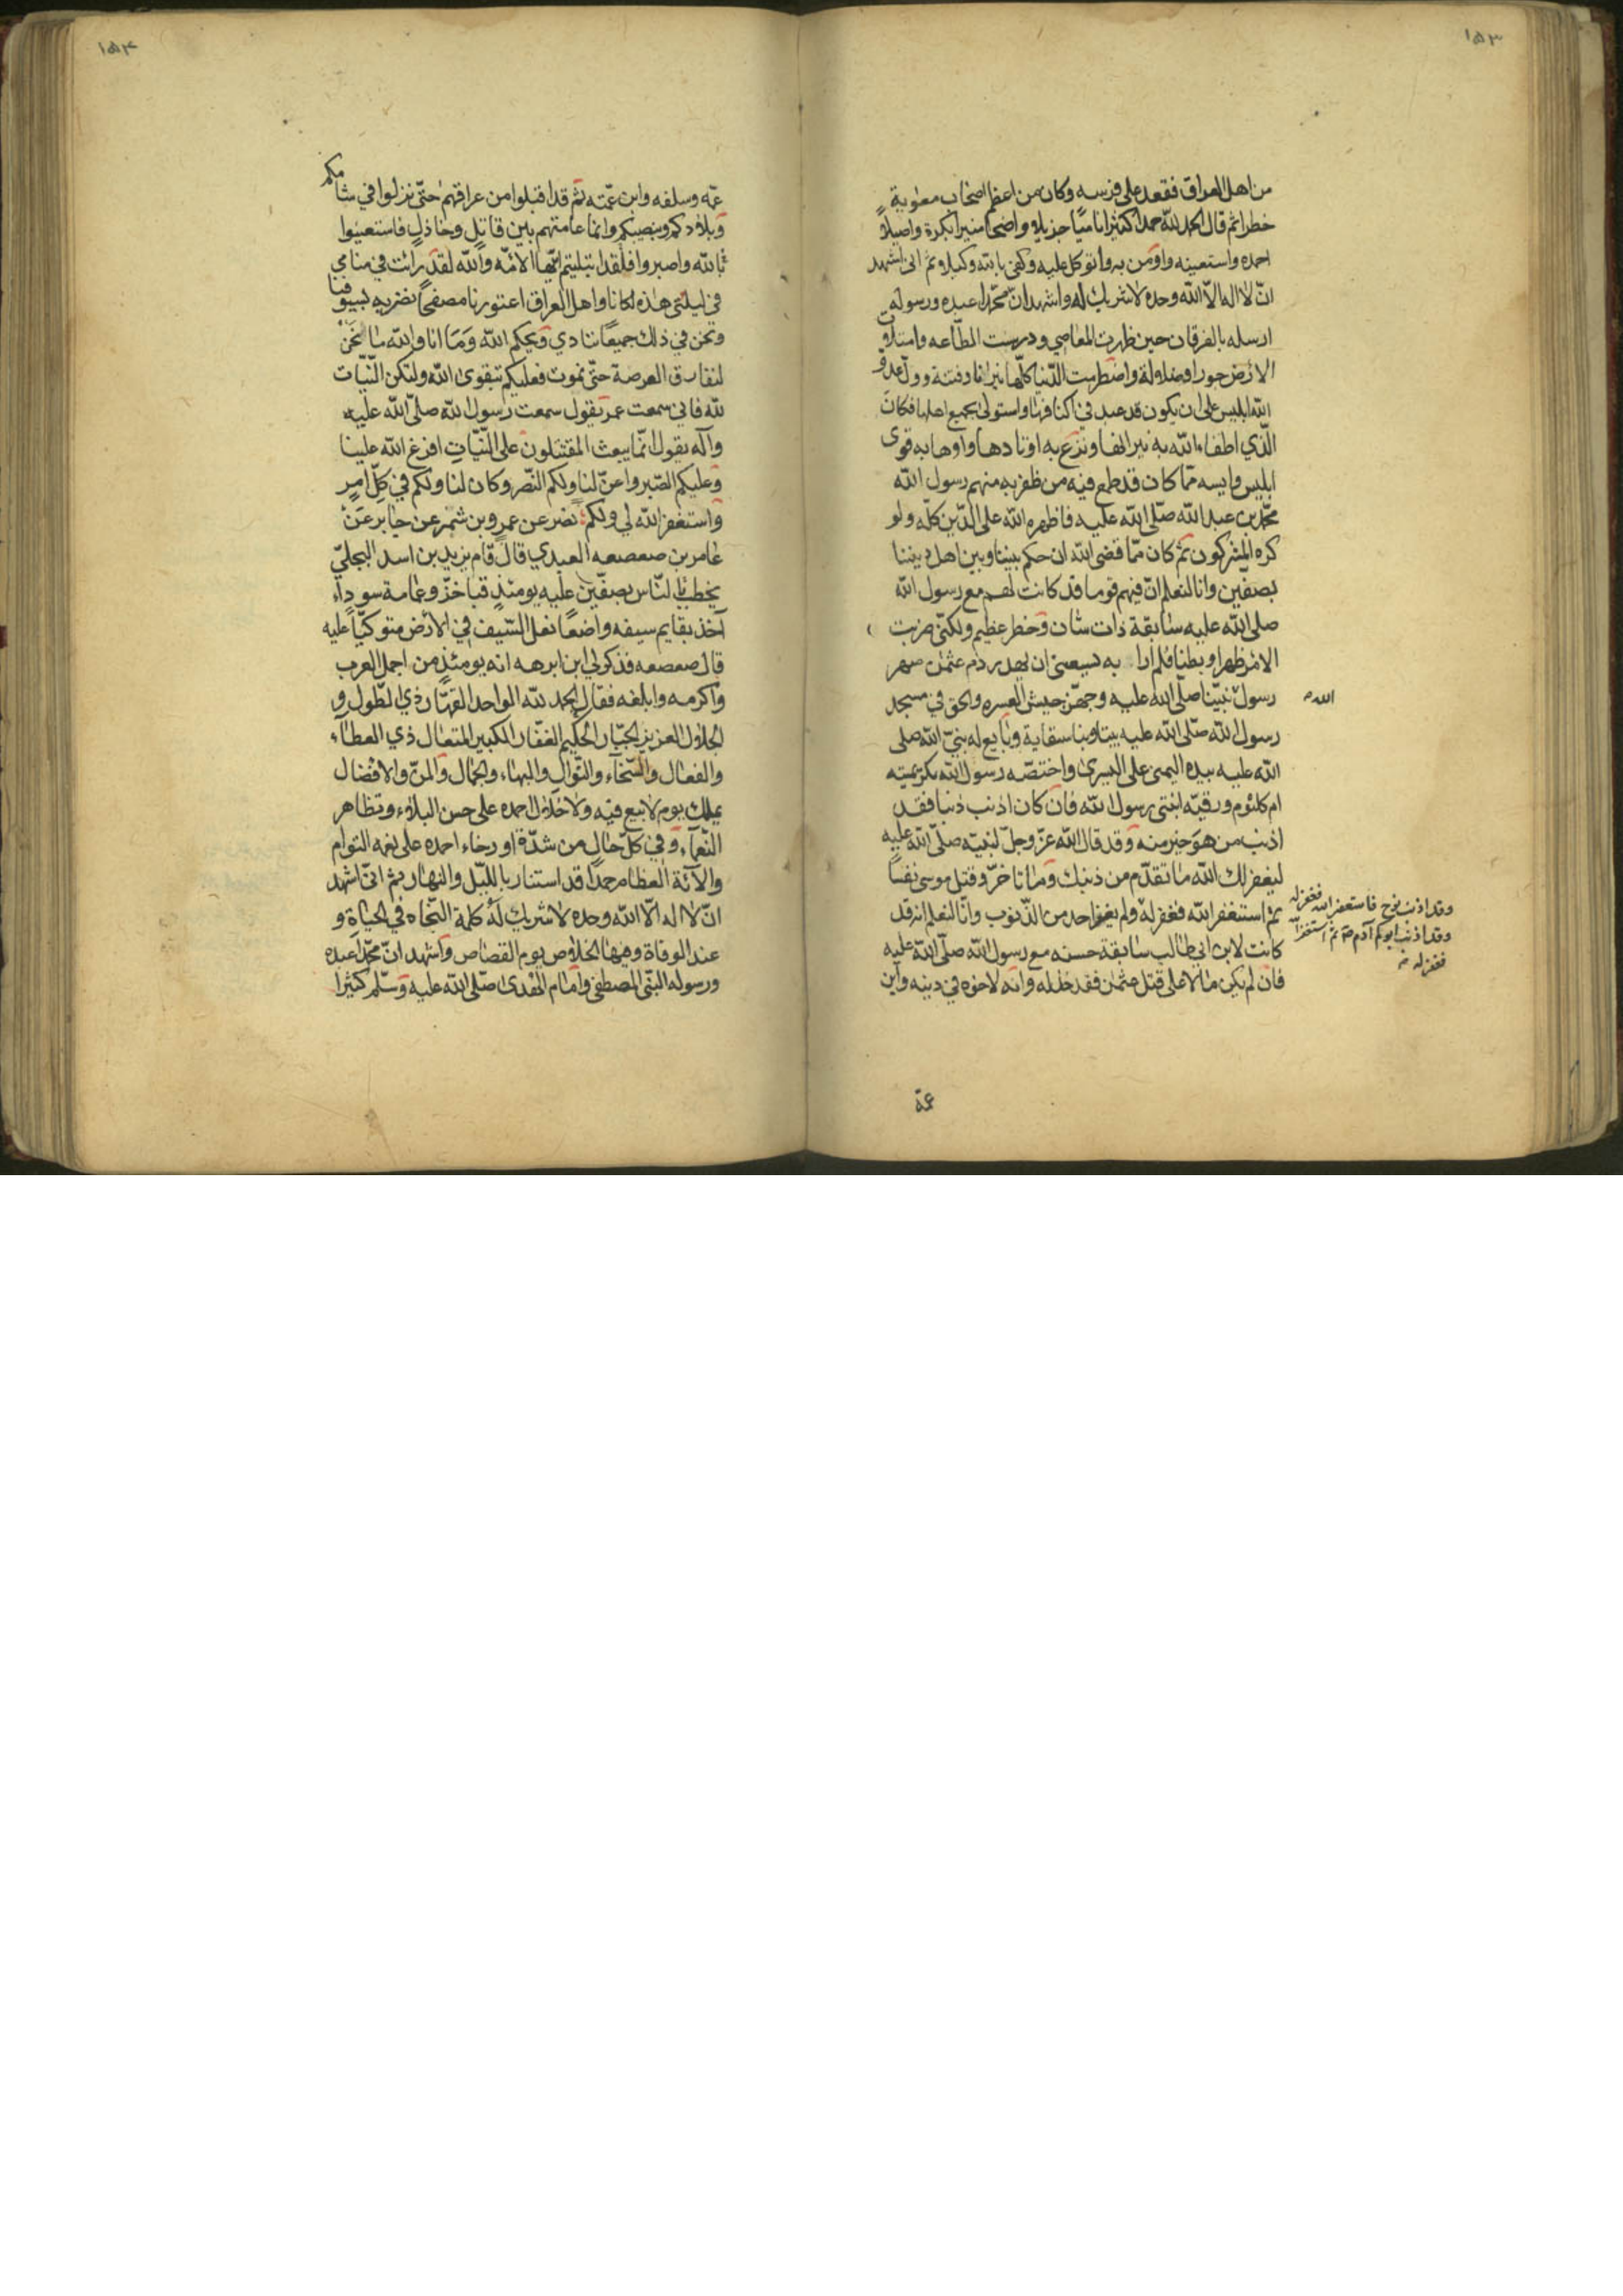 ١٥٣
من اهل العراق فقعد على فرسه وكان من اعظم اصحاب معوية
خطرا ثم قال الحمد لله حمدا كثيرا ناميا جزيلا واضحا منيرا بكرة واصيلا
احمده واستعينه واومن به واتوكل عليه وكفى بالله وكيلا ثم انى اشهد
ان لا اله الا الله وحده لا شريك له واشهد ان محمدا عبده ورسوله
ارسله بالفرقان حين ظهرت المعاصي ودرست الطاعه وامتلات
الارض جورا وضلالة واضطرمت الدنيا كلها نيرانا وفتنة وورك عدو
الله ابليس على ان يكون قد عبد في اكنافها واستولى بجميع اهلها فكان
الذي اطفاء الله به نيرانها ونزع به اوتادها واوها به قوى
ابليس وايسه مما كان قد طمع فيه من ظفر به منهم رسول الله
محمد بن عبد الله صلى الله عليه فاظهره الله على الدين كله ولو
كره المشركون ثم كان مما قضى الله ان حكم بيننا وبين اهل ديننا
بصفين وانا لنعلم ان فيهم قوما قد كانت لهم مع رسول الله
صلى الله عليه سابقة ذات شان وخطر عظيم ولكنى ضربت
الامر ظهرا وبطنا فلم ارا به يسعنى ان يهدر دم عثمن صهر
رسول نبينا صلى الله عليه وجهز جيش العسره والحق في مسجد
الله
رسول الله صلى الله عليه بيتا وبنا سقاية وبايع له نبى الله صلى
الله عليه بيده اليمنى على اليسرى واختصه رسول الله بكريمتيه
ام كلثوم ورقيه ابنتى رسول الله فان كان اذنب ذنبا فقد
اذنب من هو خير منه وقد قال الله عز وجل لنبيه صلى الله عليه
ليغفر لك الله ما تقدم من ذنبك وما تاخر وقتل موسى نفسا
ثم استغفر الله فغفر له ولم يغر احد من الذنوب وانا لنعلم انه قد
وقد اذنب نوح فاستغفر الله فغفر له
وقد اذنب ابوكم آدم ثم استغفر الله
فغفر له
كانت لابن ابي طالب سابقة حسنه مع رسول الله صلى الله عليه
فان لم يكن مالا على قتل عثمن فقد خذله وانه لاخوه في دينه وابن
عمه
١٥٤
عمه وسلفه وابن عمته ثم قد اقبلوا من عراقهم حتى نزلوا في شامكم
وبلادكم وبيضتكم وانما عامتهم بين قاتل وخاذل فاستعينوا
بالله واصبروا فلقد ابتليتم ايها الامه والله لقد رائت في منامي
في ليلتي هذه لكانا واهل العراق اعتورنا مصفحا نضربه بسيوفنا
ونحن في ذلك جميعا ننادي ويحكم الله وما انا والله ما نحن
لنفارق العرصة حتى نموت فعليكم بتقوى الله ولتكن النيات
لله فاني سمعت عمر يقول سمعت رسول الله صلى الله عليه
وآله يقول انما يبعث المقتتلون على النيات افرغ الله علينا
وعليكم الصبر واعز لنا ولكم النصر وكان لنا ولكم في كل امر
واستغفر الله لي ولكم نصر عن عمرو بن شمر عن جابر عن
عامر بن صعصعه العبدي قال قام يزيد بن اسد البجلي
يخطب الناس بصفين عليه يومئذ قبا خز وعمامة سوداء
آخذ بقايم سيفه واضعا نعل السيف في الارض متوكيا عليه
قال صعصعه فذكر لي ابن ابرهه انه يومئذ من اجمل العرب
واكرمه وابلغه فقال الحمد لله الواحد القهار ذي الطول و
الجلال العزيز الجبار الحليم الغفار الكبير المتعال ذي العطاء
والفعال والسخاء والنوال والبهاء والجمال والمن والافضال
ملك يوم لا بيع فيه ولا خلال احمده على حسن البلاء وتظاهر
النعماء وفي كل حال من شدة او رخاء احمده على نعمه التوام
والآئه العظام حمدا قد استنار بالليل والنهار ثم اني اشهد
ان لا اله الا الله وحده لا شريك له كلمة النجاه في الحياة و
عند الوفاة وفيها الخلاص يوم القصاص واشهد ان محمدا عبده
ورسوله النبى المصطفى وامام الهدى صلى الله عليه وسلم كثيرا